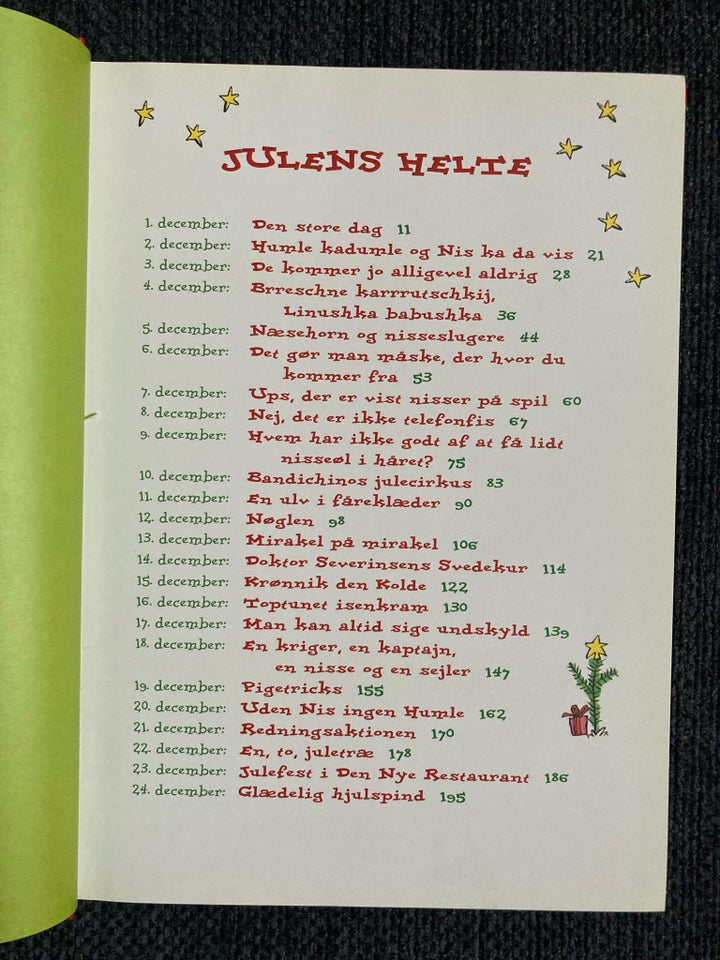 JULENS HELTE
1. december: Den store dag 11
2. december: Humle kadumle og Nis ka da vis 21
3. december: De kommer jo alligevel aldrig 28
4. december: Brreschne karrrutschkij,
Linushka babushka 36
5. december: Næsehorn og nisseslugere 44
6. december: Det gør man måske, der hvor du
kommer fra 53
7. december: Ups, der er vist nisser på spil 60
8. december: Nej, det er ikke telefonfis 67
9. december: Hvem har ikke godt af at få lidt
nisseøl i håret? 75
10. december: Bandichinos julecirkus 83
11. december: En ulv i fåreklæder 90
12. december: Nøglen 98
13. december: Mirakel på mirakel 106
14. december: Doktor Severinsens Svedekur 114
15. december: Krønnik den Kolde 122
16. december: Toptunet isenkram 130
17. december: Man kan altid sige undskyld 139
18. december: En kriger, en kaptajn,
en nisse og en sejler 147
19. december: Pigetricks 155
20. december: Uden Nis ingen Humle 162
21. december: Redningsaktionen 170
22. december: En, to, juletræ 178
23. december: Julefest i Den Nye Restaurant 186
24. december: Glædelig hjulspind 195